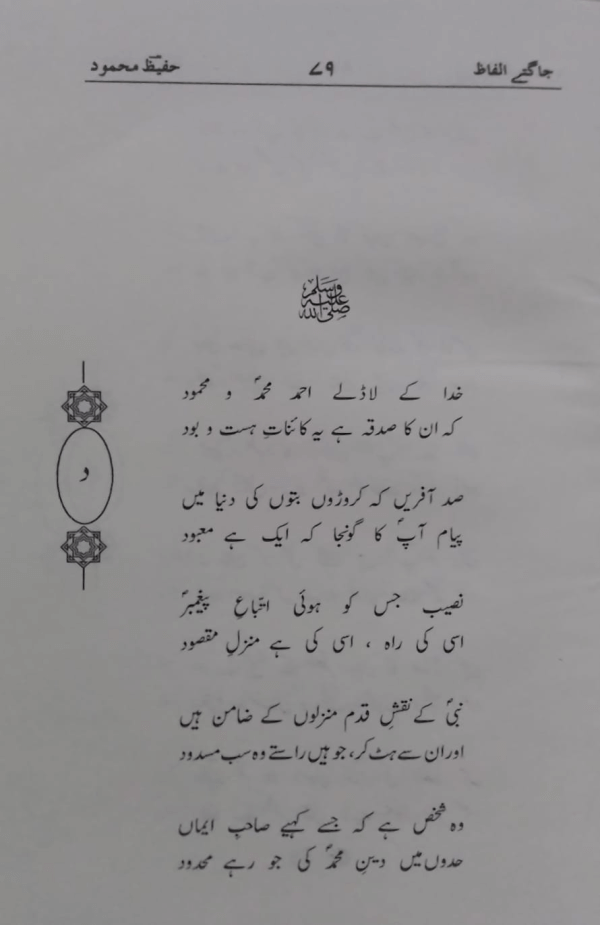 جاگتے الفاظ ۷۹ حفیظ محمود
ﷺ
خدا کے لاڈلے احمد محمدؐ و محمود
کہ ان کا صدقہ ہے یہ کائناتِ ہست و بود
د
صد آفریں کہ کروڑوں بتوں کی دنیا میں
پیام آپؐ کا گونجا کہ ایک ہے معبود
نصیب جس کو ہوئی اتباعِ پیغمبرؐ
اسی کی راہ ، اسی کی ہے منزلِ مقصود
نبیؐ کے نقشِ قدم منزلوں کے ضامن ہیں
اور ان سے ہٹ کر، جو ہیں راستے وہ سب مسدود
وہ شخص ہے کہ جسے کہیے صاحبِ ایماں
حدوں میں دینِ محمدؐ کی جو رہے محدود